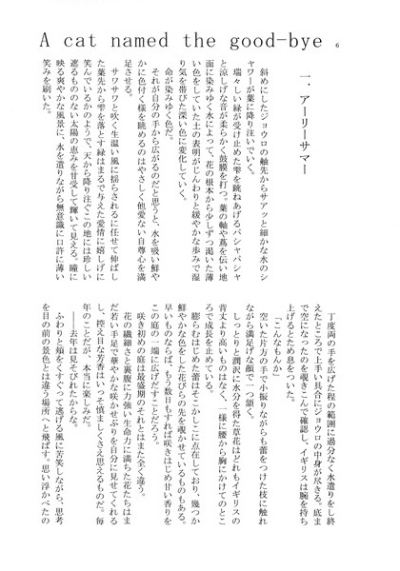 A cat named the good-bye
6
一．アーリーサマー
斜めにしたジョウロの触先からサアッと細かな水のシ
ャワーが葉に降り注いでいく。
瑞々しい緑が受け止めた雫を跳ねあげるパシャパシャ
と涼しげな音が柔らかく鼓膜を打つ。葉の軸や蔦を伝い地
面に染みゆく水によって、花の根本から少しずつ渇いた薄
い色をしていた土の表明がじんわりと緩やかな歩みで湿
り気を帯びた深い色に変化していく。
命が染みゆく色だ。
それが自分の手から広がるのだと思うと、水を吸い鮮や
かに色付く様を眺めるのはやさしく他愛ない自尊心を満
足させる。
サワサワと吹く生温い風に揺らされるに任せて伸ばし
た葉先から雫を落とす緑はまるで与えた愛情に嬉しげに
笑んでいるかのようで、天から降り注ぐこの地には珍しい
遮るもののない太陽の恵みを甘受して輝いて見える。瞳に
映る爽やかな風景に、水を遣りながら無意識に口許に薄い
笑みを刷いた。
丁度両の手を広げた程の範囲に過分なく水遣りをし終
えたところで上手い具合にジョウロの中身が尽きる。底ま
で空になったのを覗きこんで確認し、イギリスは腕を持ち
上げるとため息をついた。
「こんなもんか」
空いた片方の手で小振りながらも蕾をつけた枝に触れ
ながら満足げな顔で一つ頷く。
しっとりと潤沢に水分を得た草花はどれもイギリスの
背丈より高いものはなく、一様に腰から胸にかけてのとこ
ろで成長を止めている。
膨らむはじめた蕾はそこかしこに点在しており、幾つか
鮮やかな色をした花びらの先を覗かせているものもある。
早いものならば、もう数日もすれば咲きはじめ甘い香りを
この庭の一端に広げだすことだろう。
咲き初めの庭は最盛期のそれとはまた全く違う。
花の繊細さと裏腹に力強い生命力に満ちた花たちはま
だ若い手足で華やかな咲かせぶりを自分に見せてくれる
し、控え目な芳香はいっそ慎ましくさえ思えるものだ。毎
年のことだが、本当に楽しみだ。
――去年は見そびれたからな。
ふわりと頬をくすぐって逃げる風に苦笑しながら、思考
を目の前の景色とは違う場所へと飛ばす。思い浮かべたの